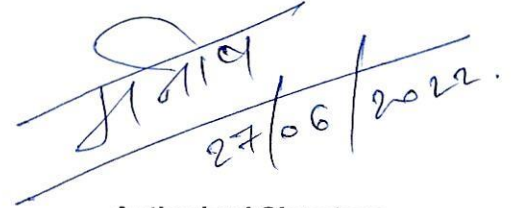 मनोष
27/06/2022.